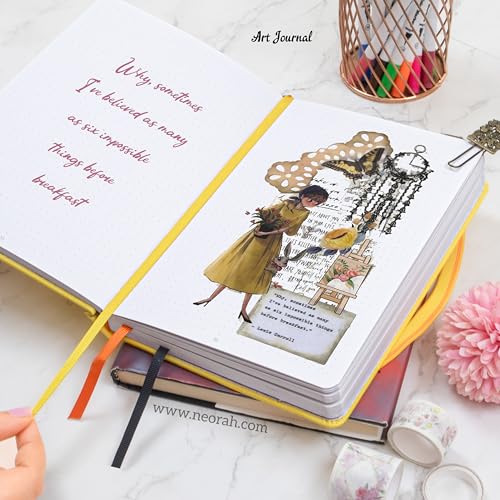 Art Journal
Why, sometimes
I've believed as many
as six impossible
things before
breakfast
"Why, sometimes
I've believed as many
as six impossible things
before breakfast."
- Lewis Carroll
www.neorah.com